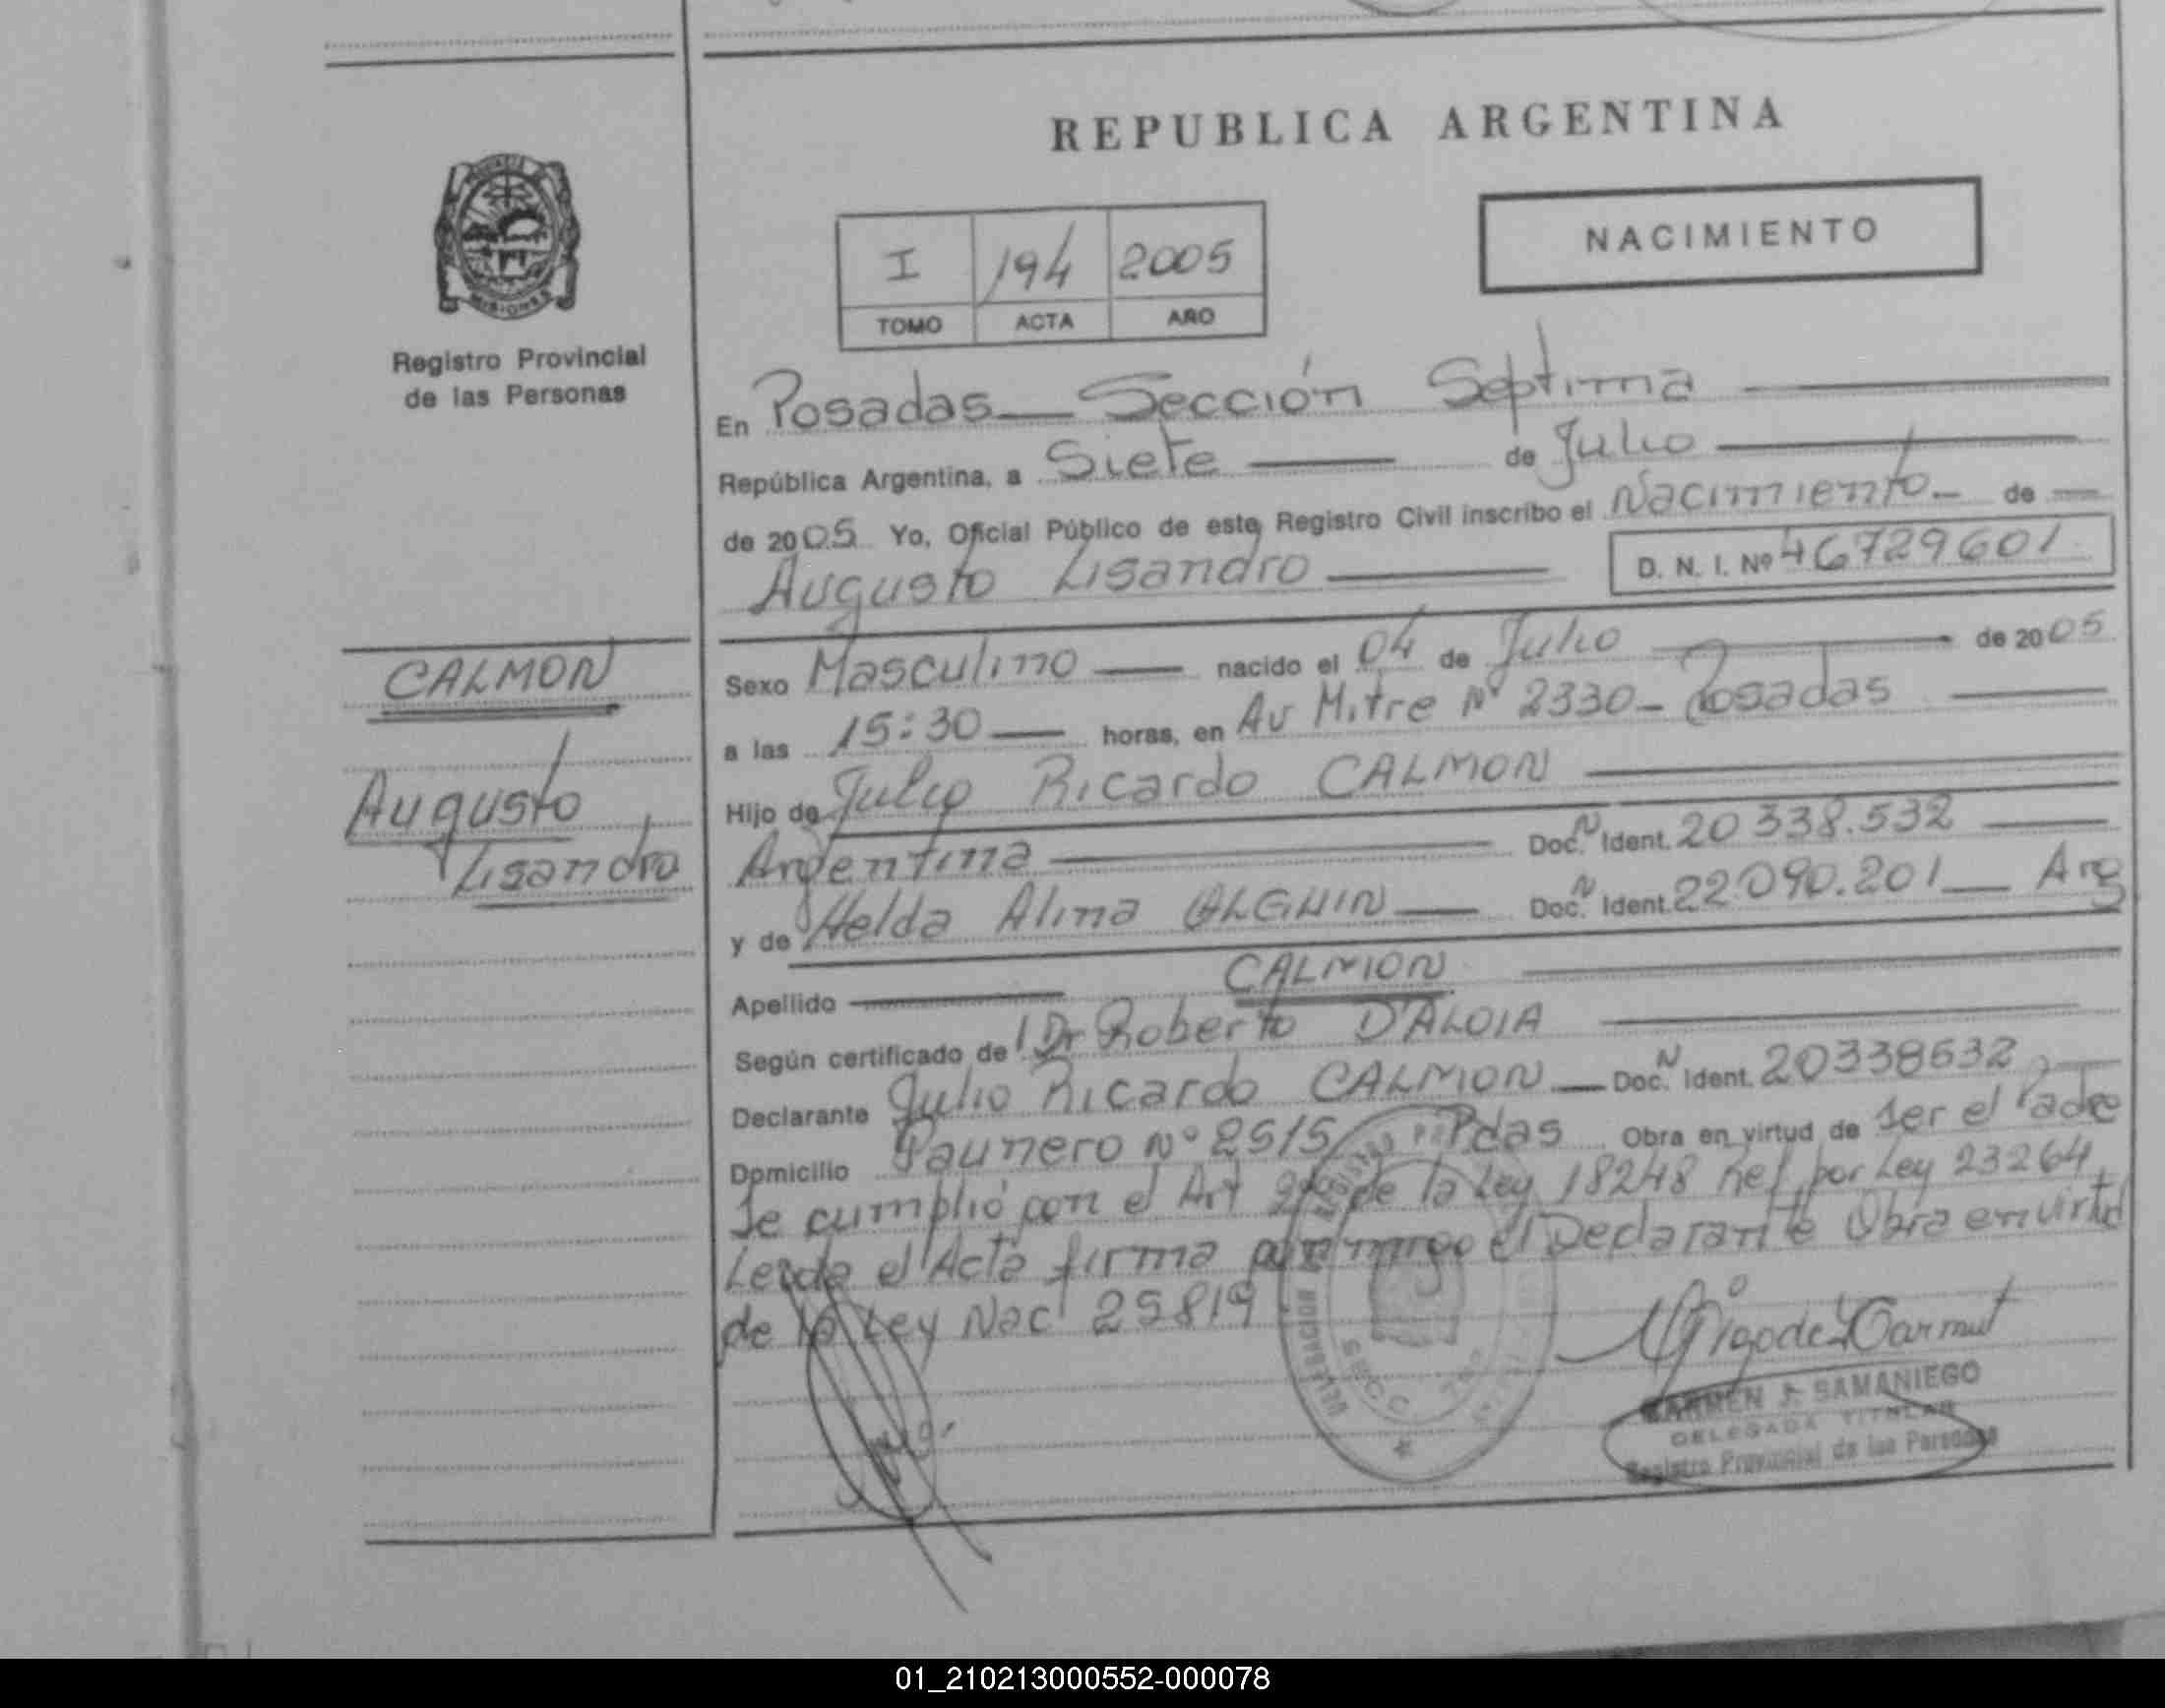 REPUBLICA ARGENTINA
NACIMIENTO
I 194 2005
TOMO ACTA AÑO
MISIONES
Registro Provincial
de las Personas
En Posadas Sección Septima
República Argentina, a Siete de Julio
de 2005 Yo, Oficial Público de este Registro Civil inscribo el Nacimiento de
Augusto Lisandro D. N. I. Nº 46729601
CALMON
Augusto
Lisandro
Sexo Masculino nacido el 04 de Julio de 2005
a las 15:30 horas, en Av Mitre Nº 2330 - Posadas
Hijo de Julio Ricardo CALMON
Argentina Doc. N Ident. 20 338.532
y de Helda Alina Doc. N Ident. 22.090.201 Arg
Apellido CALMON
Según certificado de Dr Roberto D'ALOIA
Declarante Julio Ricardo CALMON Doc. N Ident. 20338532
Domicilio Paunero Nº 2515 Pdas Obra en virtud de ser el Padre
Se cumplió con el Art de la Ley 18248 por Ley 23264
Leida el Acta firma el Declarante Obra en virtud
de la Ley Nac 25819
CARMEN J. SAMANIEGO
DELEGADA TITULAR
Registro Provincial de las Personas
01_210213000552-000078